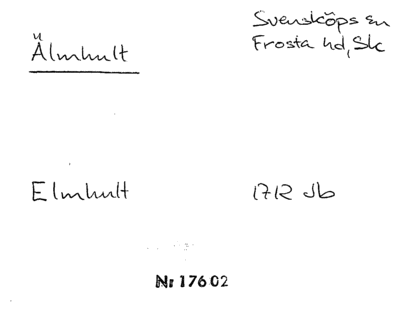 Älmhult
Svensköps sn
Frosta hd, Sk
Elmhult
1712 Jb
Nr 17602